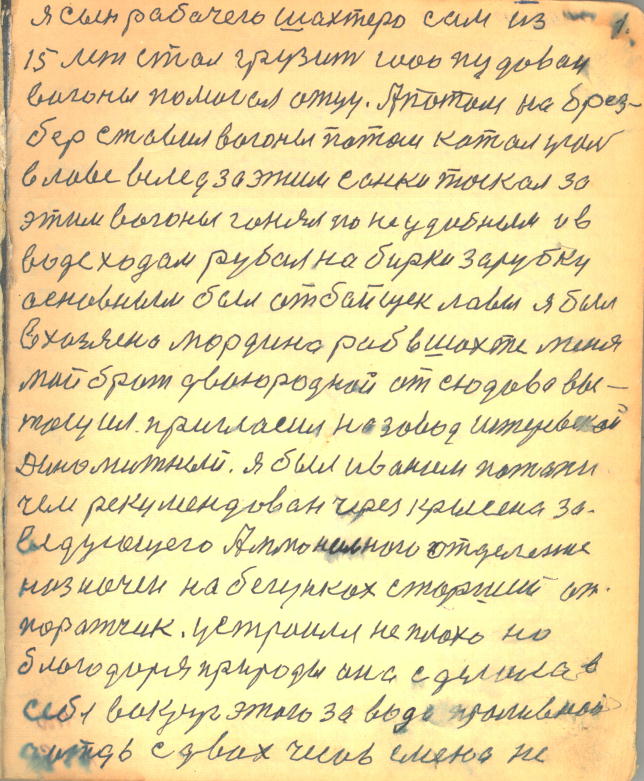 1.
я сын рабачего шахтеро сам из
15 лет стал грузит 1000 пудован
вогоны помогал отцу. А потом на брез-
бер ставил вогоны потом катал угол
в лаве вслед за этим санки тоскал за
этим вогоны гонял по не удобным и в
воде ходам рубал на бирки зарубку
основным был отбайщек лавы я был
в хозяено мордина раб в шахте меня
май брат двоюродной от сюдова вы-
тощил. пригласил на завод штеровской
Диномитный. я был иваным потапи
чем рекумендован через крысена за-
ведующего Аммонального отделение
нозночен на бегунках старший оп-
поратчик. устроили не плохо но
благодоря природы она сделала в
себя вокруг этого заводе проливной
дождь с двох чесов смена не